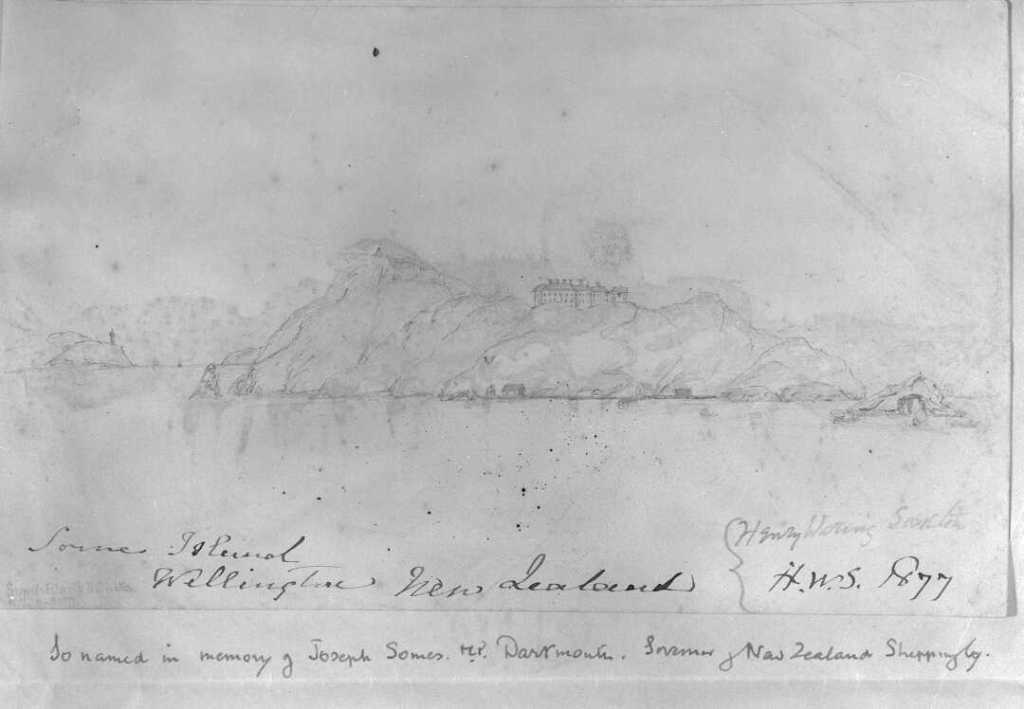 Somes Island
Wellington New Zealand
Henry W Saxton
H.W.S. 1877
So named in memory of Joseph Somes. M.P. Dartmouth. Governor of New Zealand Shipping Co.